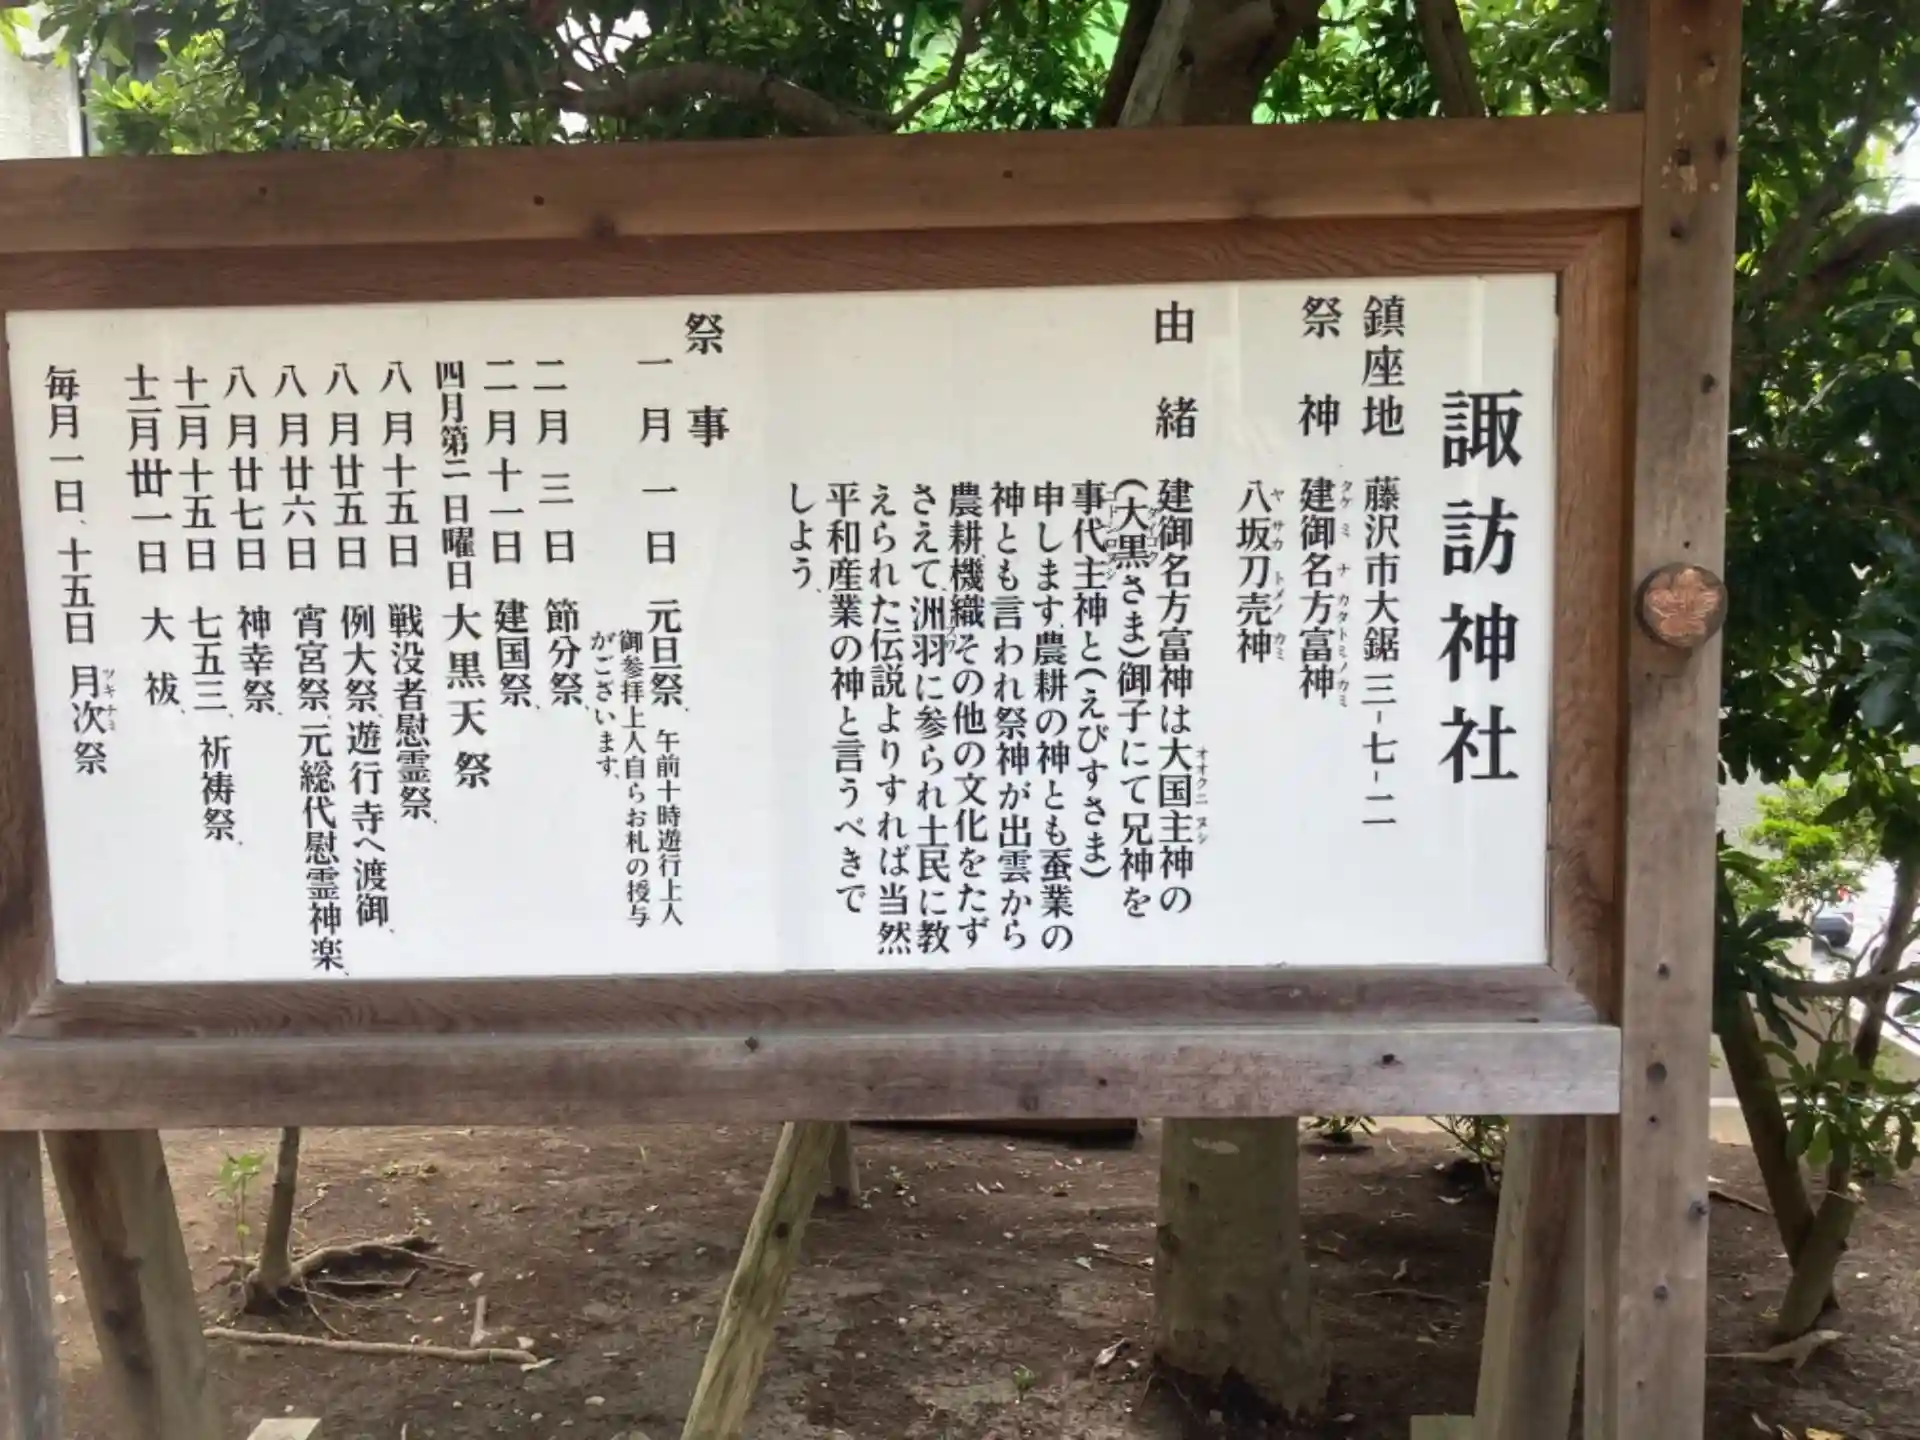 諏訪神社
鎮座地 藤沢市大鋸三-七-二
祭神 建御名方富神
タケミナカタトミノカミ
八坂刀売神
ヤサカトメノカミ
由緒 建御名方富神は大国主神の
オオクニヌシ
(大黒さま)御子にて兄神を
ダイコク
事代主神と(えびすさま)
コトシロヌシ
申します、農耕の神とも蚕業の
神とも言われ祭神が出雲から
農耕、機織その他の文化をたず
さえて、洲羽に参られ土民に教
えられた伝説よりすれば当然
平和産業の神と言うべきで
しょう、
祭事
一月一日 元旦祭、午前十時遊行上人
御参拝上人自らお札の授与
がございます、
二月三日 節分祭、
二月十一日 建国祭、
四月第二日曜日 大黒天祭
八月十五日 戦没者慰霊祭、
八月廿五日 例大祭、遊行寺へ渡御、
八月廿六日 宵宮祭、元総代慰霊神楽、
八月廿七日 神幸祭、
十一月十五日 七五三、祈祷祭、
十二月卅一日 大祓、
毎月一日、十五日 月次祭
ツキナミ